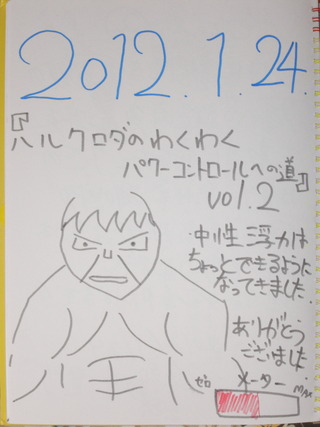 2012.1.24.
『ハルクロダのわくわく
パワーコントロールへの道』
vol.2
中性浮力は
ちょっとできるように
なってきました
ありがとう
ございました
ゼロ メーター MAX